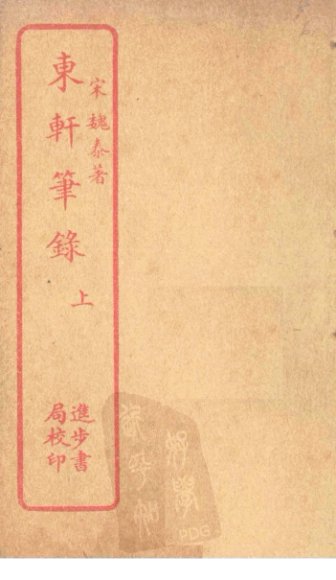 宋魏泰著
東軒筆錄
上
進步書
局校印
PDG